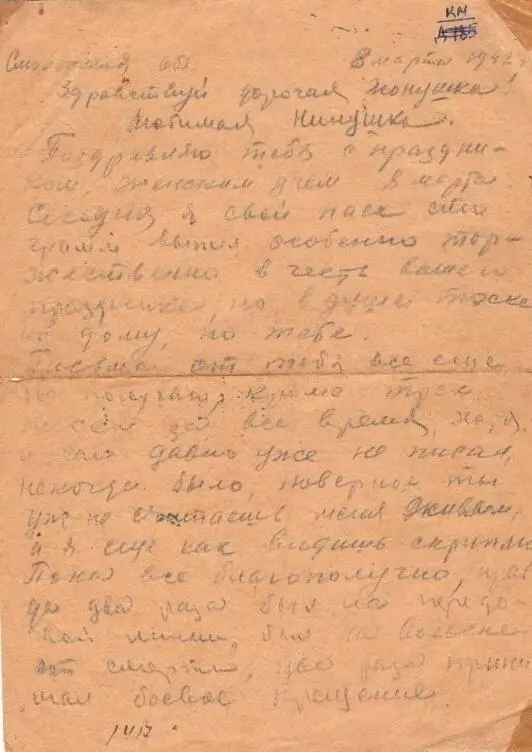 КМ
Д-185
Смоленская обл 8 марта 1942 г
Здравствуй дорогая Жонушка!
Любимая Нинушка.
Поздравляю тебя с праздни-
ком, женским днем 8 марта.
Сегодня я свой паек сто
грамм выпил особенно тор-
жественно в честь вашего
праздника, но в душе тоска
по дому, по тебе.
Письма от тебя все еще
не получаю, кроме трех
писем за все время,
и сам давно уже не писал,
некогда было, наверное ты
уж не считаешь меня живым,
а я еще как видишь скриплю
Пока все благополучно, прав
да два раза был на передо
вой линии, был на волоске
от смерти, два раза прини
мал боевое крещение